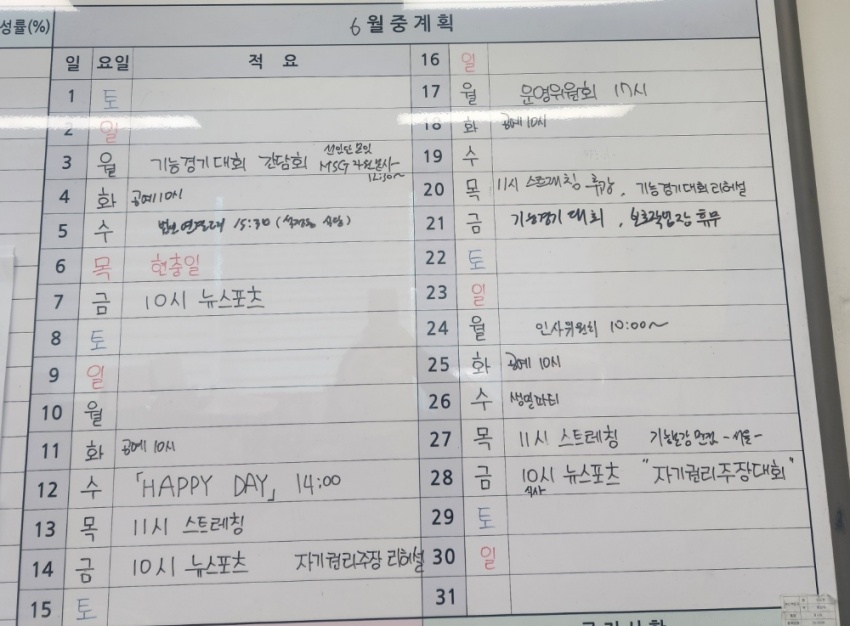 성률(%)
6월중계획
일 요일 적 요
1 토
2 일
3 월 기능경기대회 간담회 MSG 자원봉사
12:30~
4 화 공예 10시
5 수 15:30
6 목 현충일
7 금 10시 뉴스포츠
8 토
9 일
10 월
11 화 공예 10시
12 수 「HAPPY DAY」 14:00
13 목 11시 스트레칭
14 금 10시 뉴스포츠 자기권리주장 리허설
15 토
16 일
17 월 운영위원회 17시
18 화 공예 10시
19 수
20 목 11시 스트레칭 휴강, 기능경기대회 리허설
21 금 기능경기 대회, 보호작업장 휴무
22 토
23 일
24 월 인사위원회 10:00~
25 화 공예 10시
26 수 생일파티
27 목 11시 스트레칭 기능보강 -서울-
28 금 10시 뉴스포츠 "자기권리주장대회"
식사
29 토
30 일
31